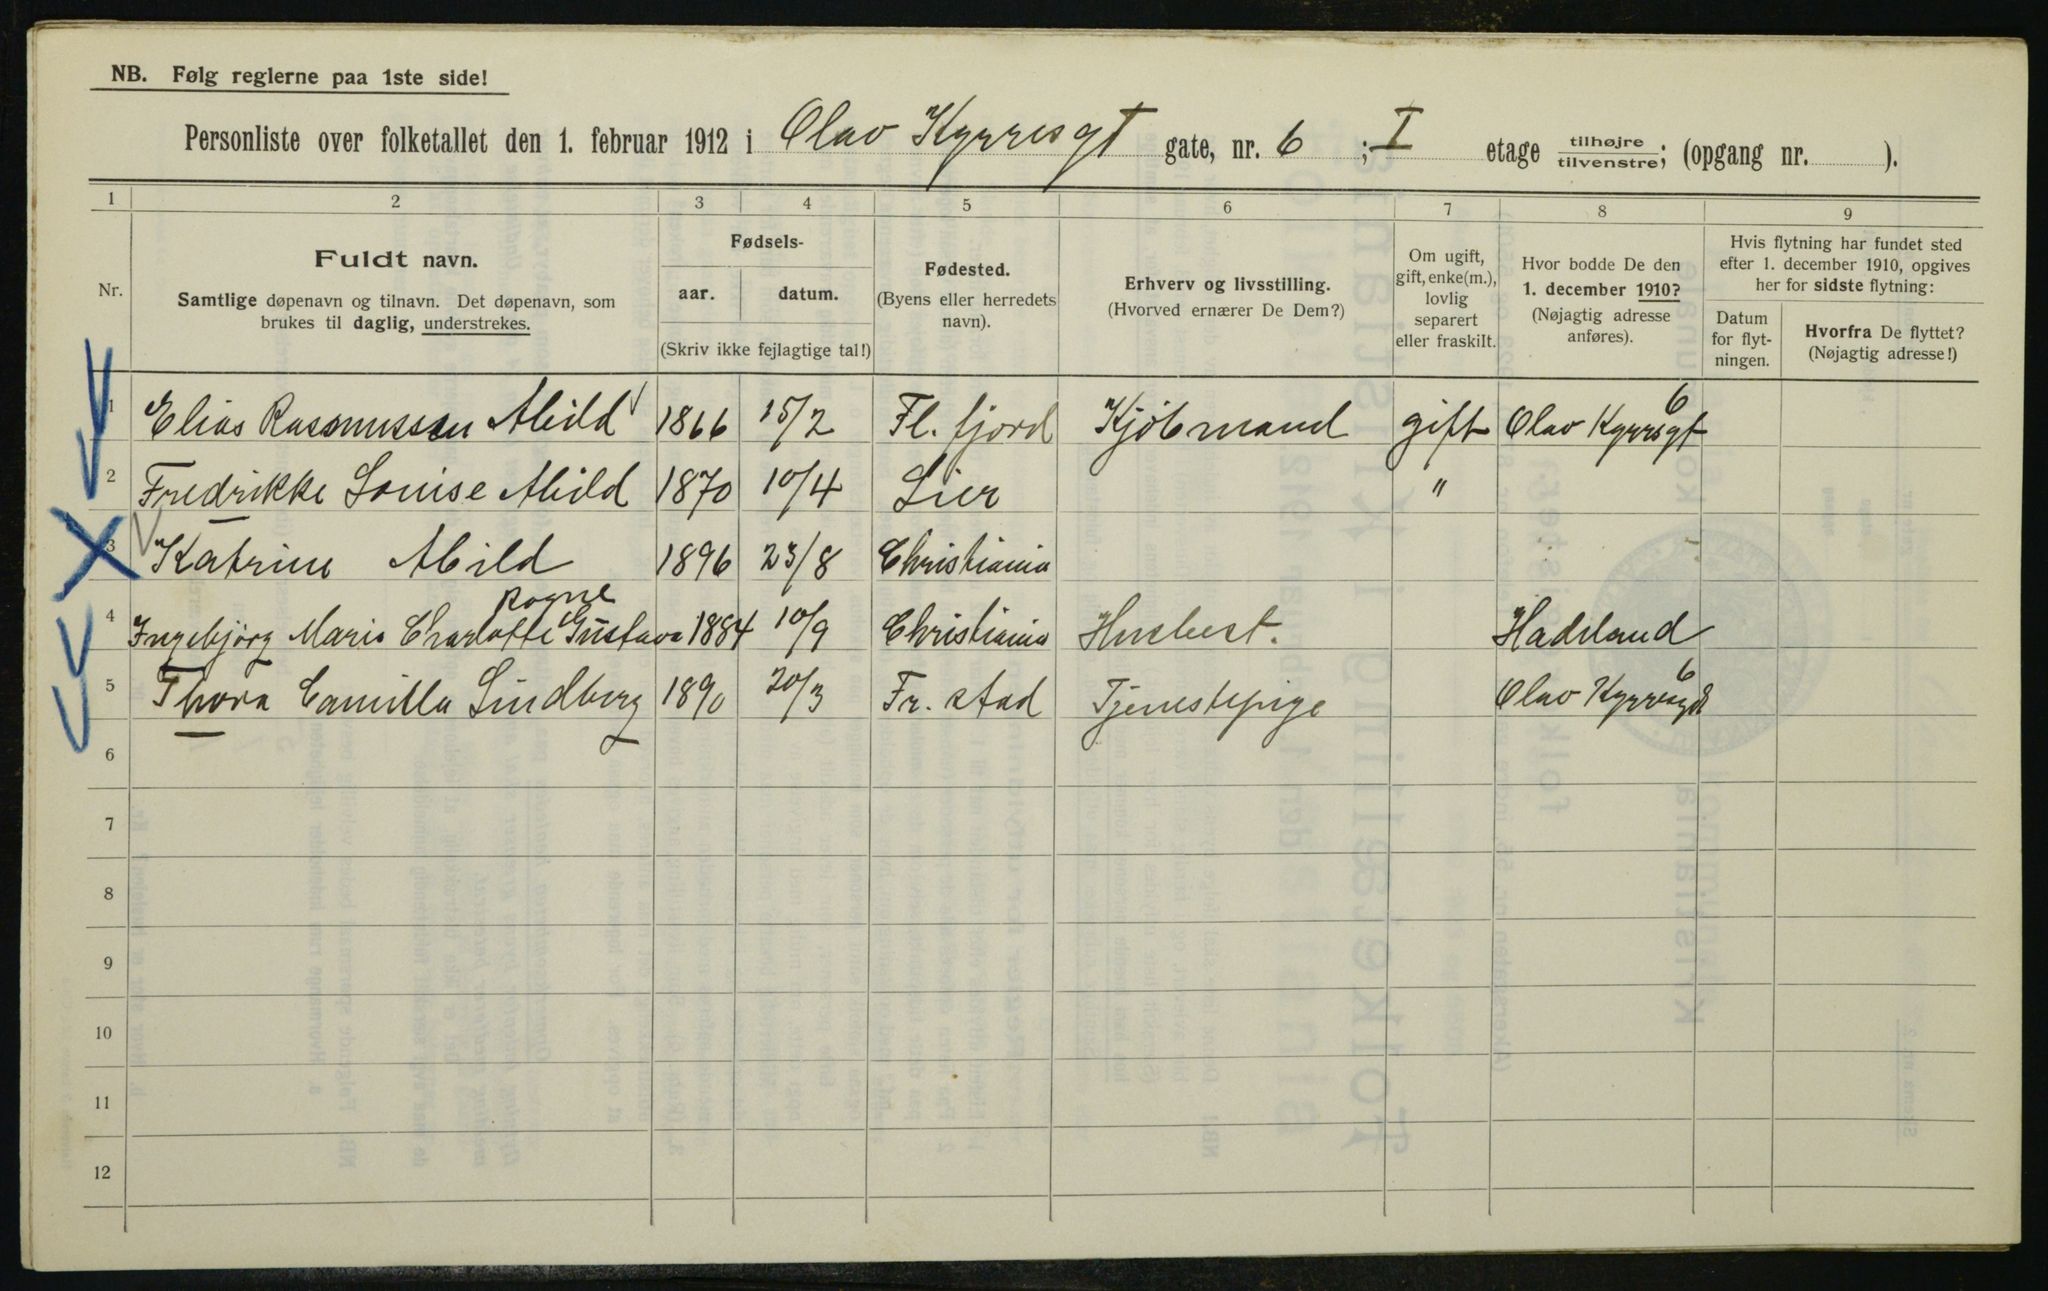 NB. Følg reglerne paa 1ste side!
Personliste over folketallet den 1. februar 1912 i Olav Kyrresgt gate, nr. 6 ; I etage tilhøjre tilvenstre; (opgang nr. ).
1 2 3 4 5 6 7 8 9
Nr.
Fuldt navn.
Samtlige døpenavn og tilnavn. Det døpenavn, som
brukes til daglig, understrekes.
Fødsels-
aar. datum.
(Skriv ikke fejlagtige tal!)
Fødested.
(Byens eller herredets
navn).
Erhverv og livsstilling.
(Hvorved ernærer De Dem?)
Om ugift,
gift, enke(m.),
lovlig
separert
eller fraskilt.
Hvor bodde De den
1. december 1910?
(Nøjagtig adresse
anføres).
Hvis flytning har fundet sted
efter 1. december 1910, opgives
her for sidste flytning:
Datum
for flyt-
ningen.
Hvorfra De flyttet?
(Nøjagtig adresse!)
1 Elias Rasmussen Abild 1866 15/2 Fl. fjord Kjöbmand gift Olav Kyrresgt 6
2 Fredrikke Louise Abild 1870 10/4 Lier "
3 Katrine Abild 1896 23/8 Christiania
4 Ingebjörg Marie Charlotte Gustava 1884 10/9 Christiania Husbest. Hadeland
5 Thora Camilla Lindberg 1890 20/3 Fr. stad Tjenestepige Olav Kyrresgt 6
6
7
8
9
10
11
12